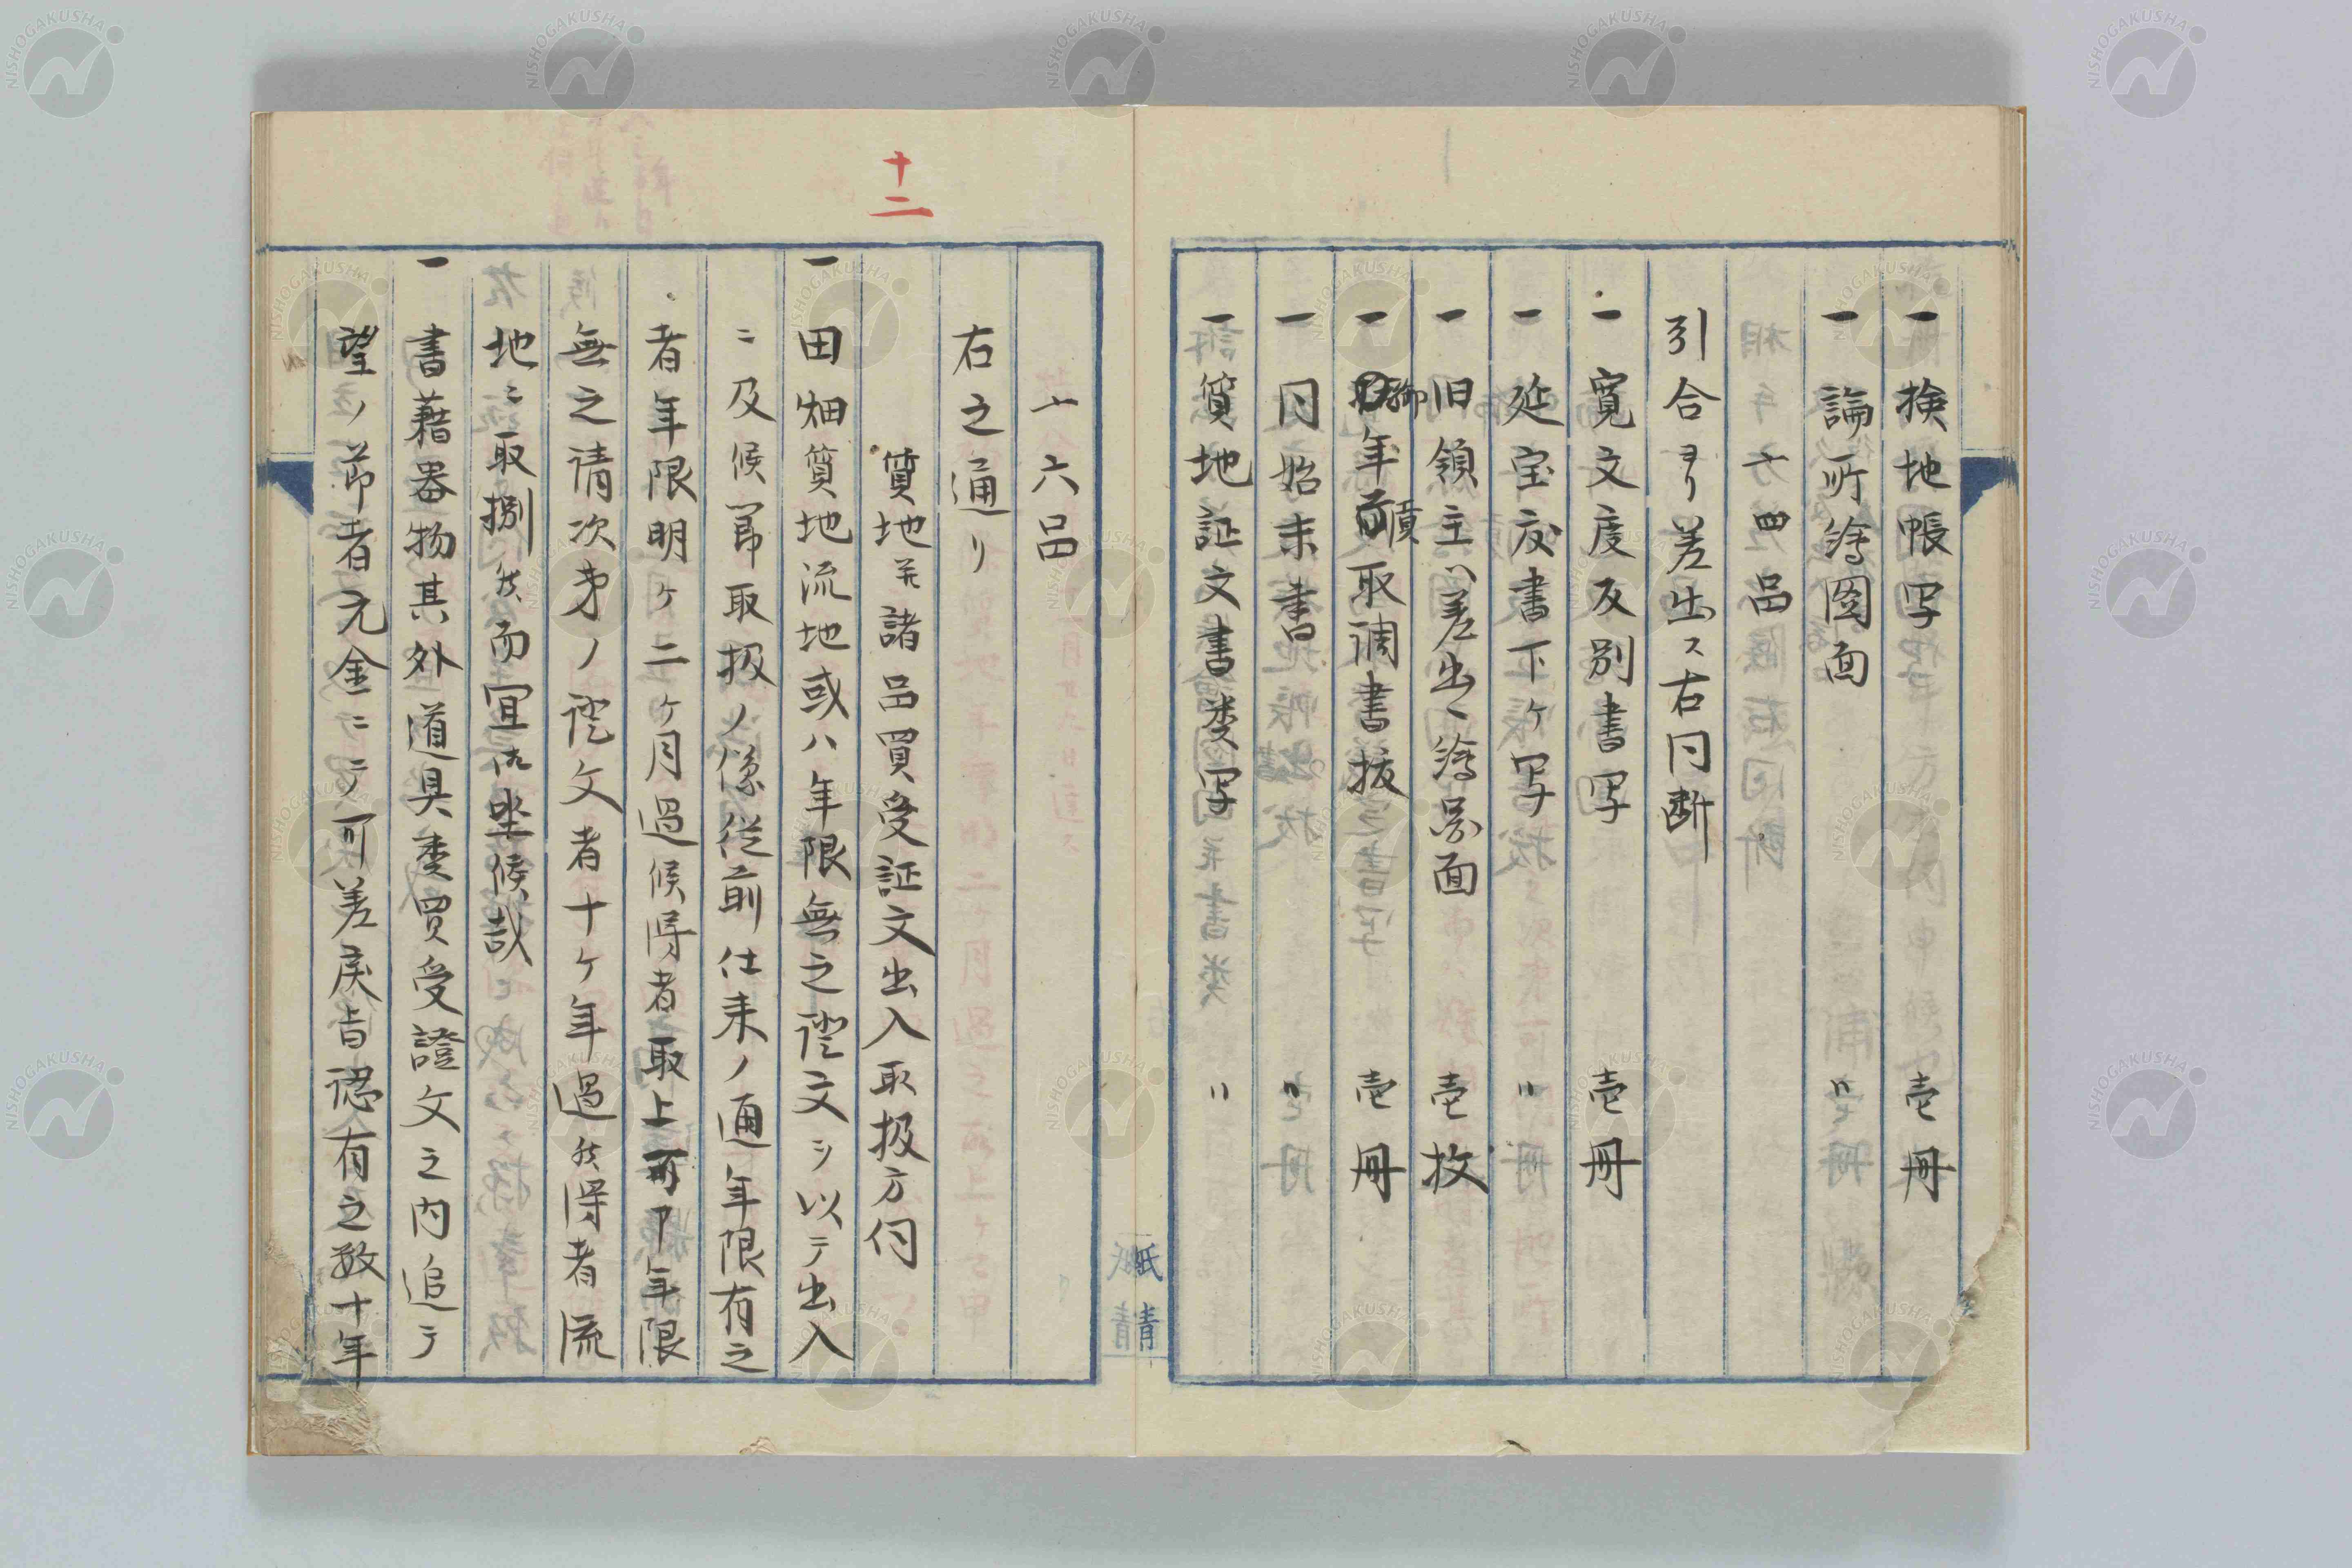 一 検地帳写 壱冊
一 論所繪圖面 〃
〆四品
引合ヨリ差出ス右同断
一 寛文度反別書写 壱冊
一 延宝度書下ケ写 〃
一 旧領主ヘ差出ス繪図面 壱枚
一 御年貢取調書抜 壱冊
一 同始末書 〃
一 質地証文書類写 〃
〆六品
右之通リ
十二
質地并諸品買受証文出入取扱方伺
一 田畑質地流地或ハ年限無之證文ヲ以テ出入
ニ及候節取扱ノ儀従前仕来ノ通年限有之
者年限明ケ二ケ月過候得者取上可申年限
無之請次第ノ證文者十ケ年過候得者流
地ニ取捌候而冝御坐候哉
一 書藉器物其外道具類買受證文之内追テ
望ノ節者元金ニテ可差戻旨認有之数十年
紙
青